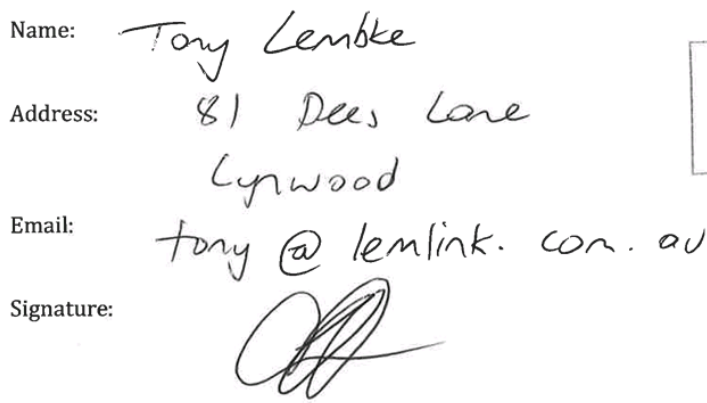 Name: Tony Lembke
Address: 81 Dees Lane
Lynwood
Email: tony @ lemlink. com. au
Signature: